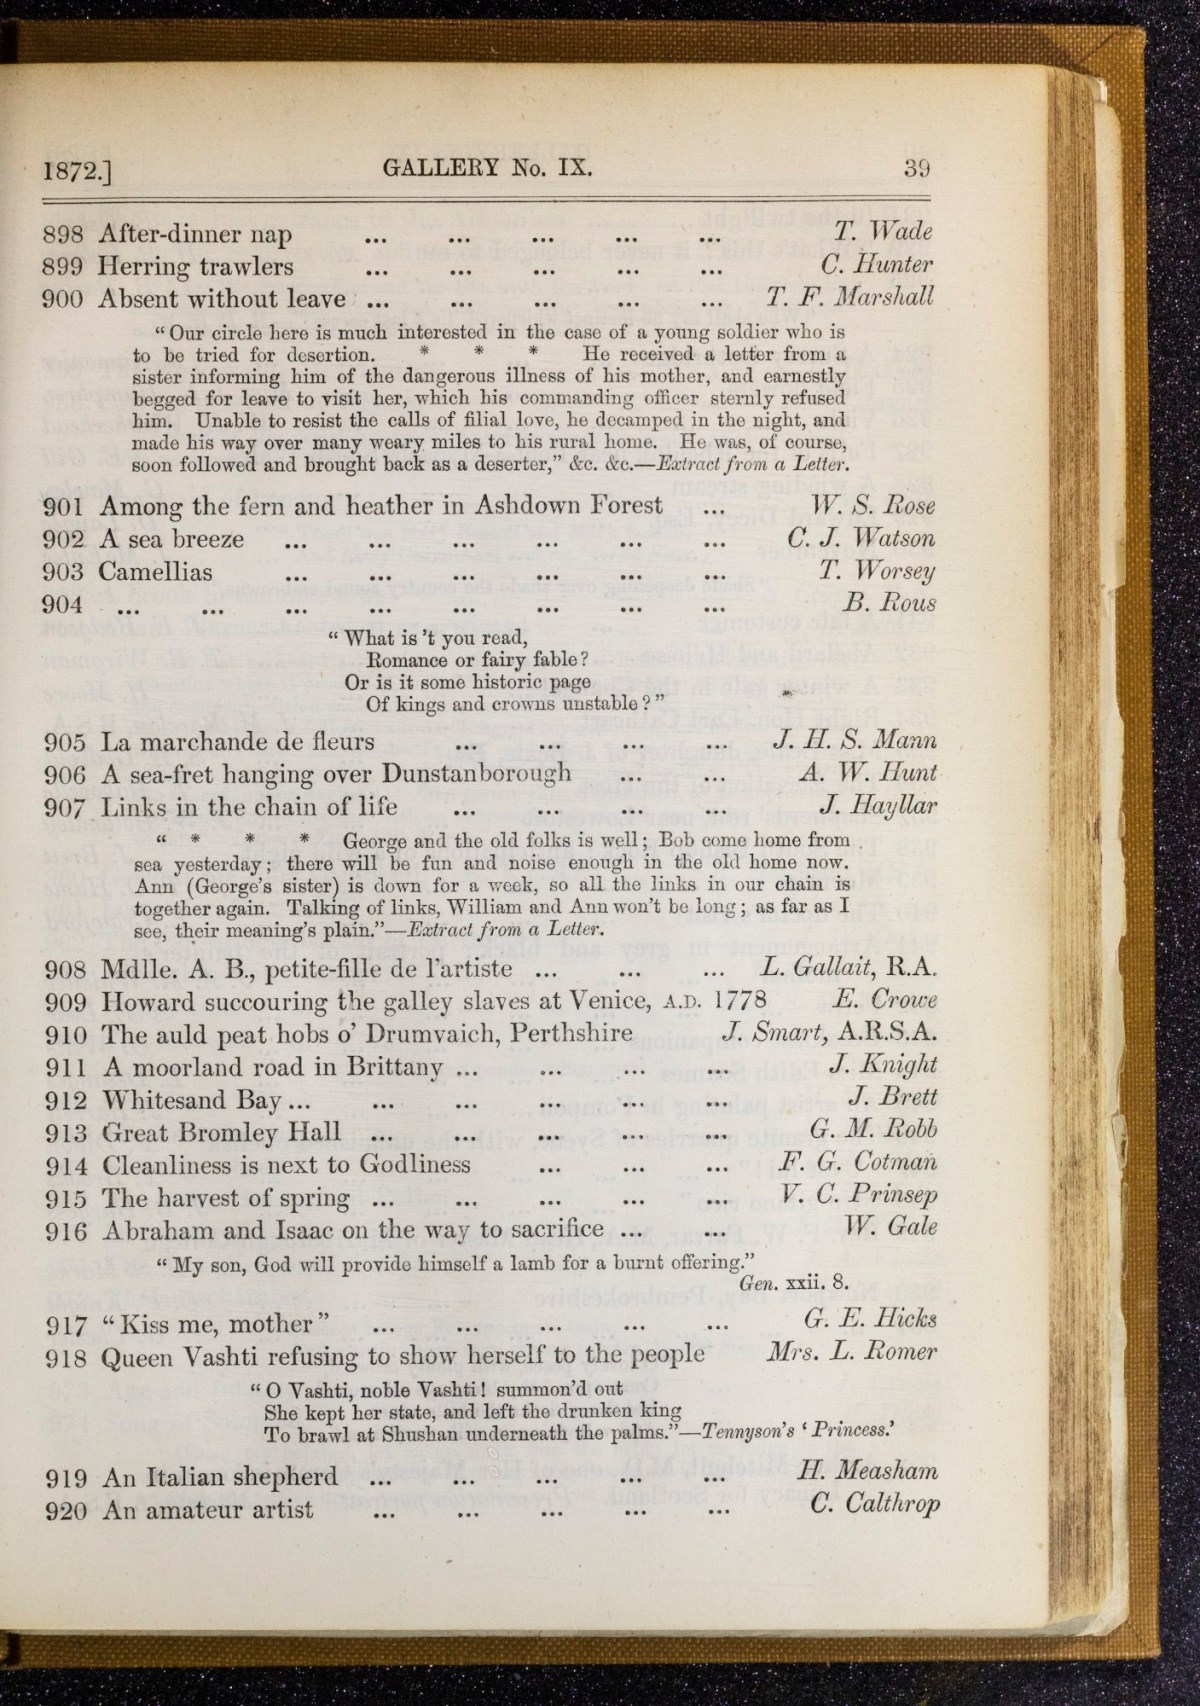 1872.] GALLERY No. IX. 39
898 After-dinner nap ... ... ... ... ... T. Wade
899 Herring trawlers ... ... ... ... ... C. Hunter
900 Absent without leave ... ... ... ... ... T. F. Marshall
“ Our circle here is much interested in the case of a young soldier who is
to be tried for desertion. * * * He received a letter from a
sister informing him of the dangerous illness of his mother, and earnestly
begged for leave to visit her, which his commanding officer sternly refused
him. Unable to resist the calls of filial love, he decamped in the night, and
made his way over many weary miles to his rural home. He was, of course,
soon followed and brought back as a deserter,” &c. &c.—Extract from a Letter.
901 Among the fern and heather in Ashdown Forest ... W. S. Rose
902 A sea breeze ... ... ... ... ... ... C. J. Watson
903 Camellias ... ... ... ... ... ... T. Worsey
904 ... ... ... ... ... ... ... ... B. Rous
“ What is ’t you read,
Romance or fairy fable?
Or is it some historic page
Of kings and crowns unstable?”
905 La marchande de fleurs ... ... ... ... J. H. S. Mann
906 A sea-fret hanging over Dunstanborough ... ... A. W. Hunt
907 Links in the chain of life ... ... ... ... J. Hayllar
“ * * * George and the old folks is well; Bob come home from
sea yesterday; there will be fun and noise enough in the old home now.
Ann (George’s sister) is down for a week, so all the links in our chain is
together again. Talking of links, William and Ann won’t be long; as far as I
see, their meaning’s plain.”—Extract from a Letter.
908 Mdlle. A. B., petite-fille de l’artiste ... ... ... L. Gallait, R.A.
909 Howard succouring the galley slaves at Venice, A.D. 1778 E. Crowe
910 The auld peat hobs o’ Drumvaich, Perthshire J. Smart, A.R.S.A.
911 A moorland road in Brittany ... ... ... ... J. Knight
912 Whitesand Bay ... ... ... ... ... ... J. Brett
913 Great Bromley Hall ... ... ... ... ... G. M. Robb
914 Cleanliness is next to Godliness ... ... ... F. G. Cotman
915 The harvest of spring ... ... ... ... ... V. C. Prinsep
916 Abraham and Isaac on the way to sacrifice ... ... W. Gale
“ My son, God will provide himself a lamb for a burnt offering.”
Gen. xxii. 8.
917 “ Kiss me, mother ” ... ... ... ... ... G. E. Hicks
918 Queen Vashti refusing to show herself to the people Mrs. L. Romer
“ O Vashti, noble Vashti! summon’d out
She kept her state, and left the drunken king
To brawl at Shushan underneath the palms.”—Tennyson’s ‘ Princess.’
919 An Italian shepherd ... ... ... ... ... H. Measham
920 An amateur artist ... ... ... ... ... C. Calthrop